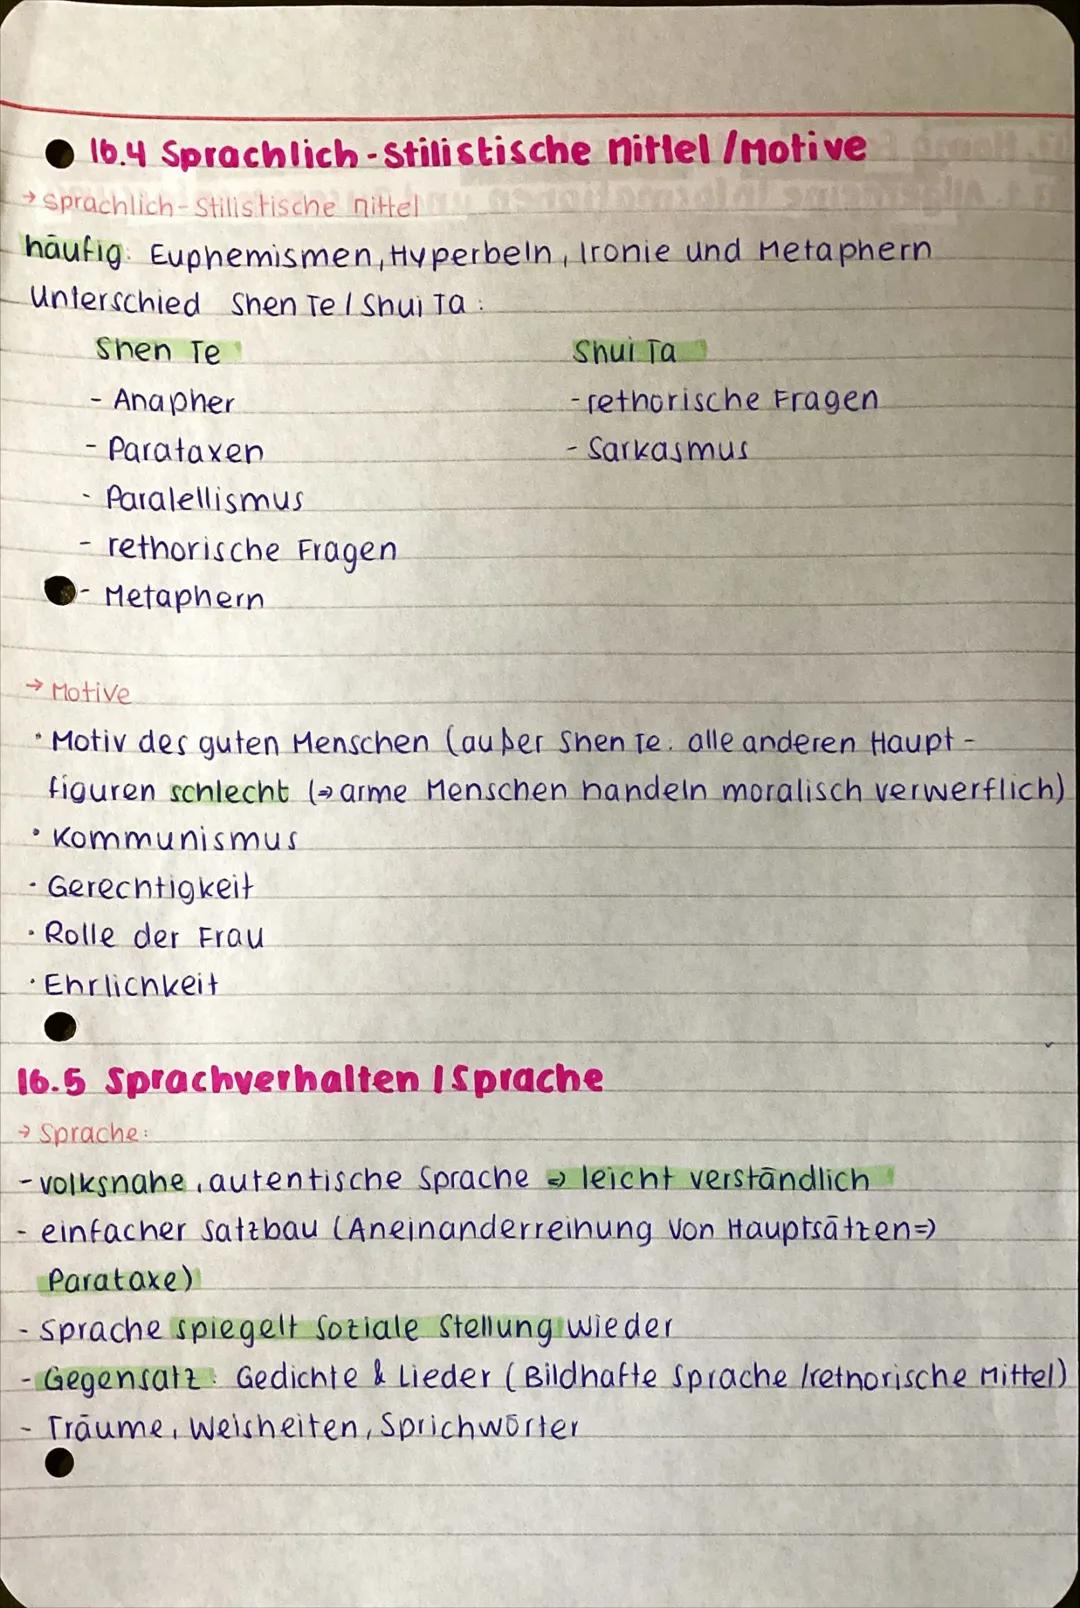 16.4 Sprachlich-Stilistische Mittel / Motive
→ Sprachlich-Stilistische Mittel
häufig: Euphemismen, Hyperbeln, Ironie und Metaphern
Unterschied Shen Te / Shui Ta:
Shen Te Shui Ta
- Anapher - rethorische Fragen
- Parataxen - Sarkasmus
- Paralellismus
- rethorische Fragen
- Metaphern
→ Motive
• Motiv des guten Menschen (außer Shen Te: alle anderen Haupt-
figuren schlecht (⇒ arme Menschen handeln moralisch verwerflich)
• Kommunismus
• Gerechtigkeit
• Rolle der Frau
• Ehrlichkeit
16.5 Sprachverhalten / Sprache
→ Sprache:
- volksnahe, autentische Sprache ⇒ leicht verständlich
- einfacher Satzbau (Aneinanderreihung von Hauptsätzen ⇒)
Parataxe)
- Sprache spiegelt soziale Stellung wieder
- Gegensatz: Gedichte & Lieder (Bildhafte Sprache / rethorische Mittel)
- Träume, Weisheiten, Sprichwörter